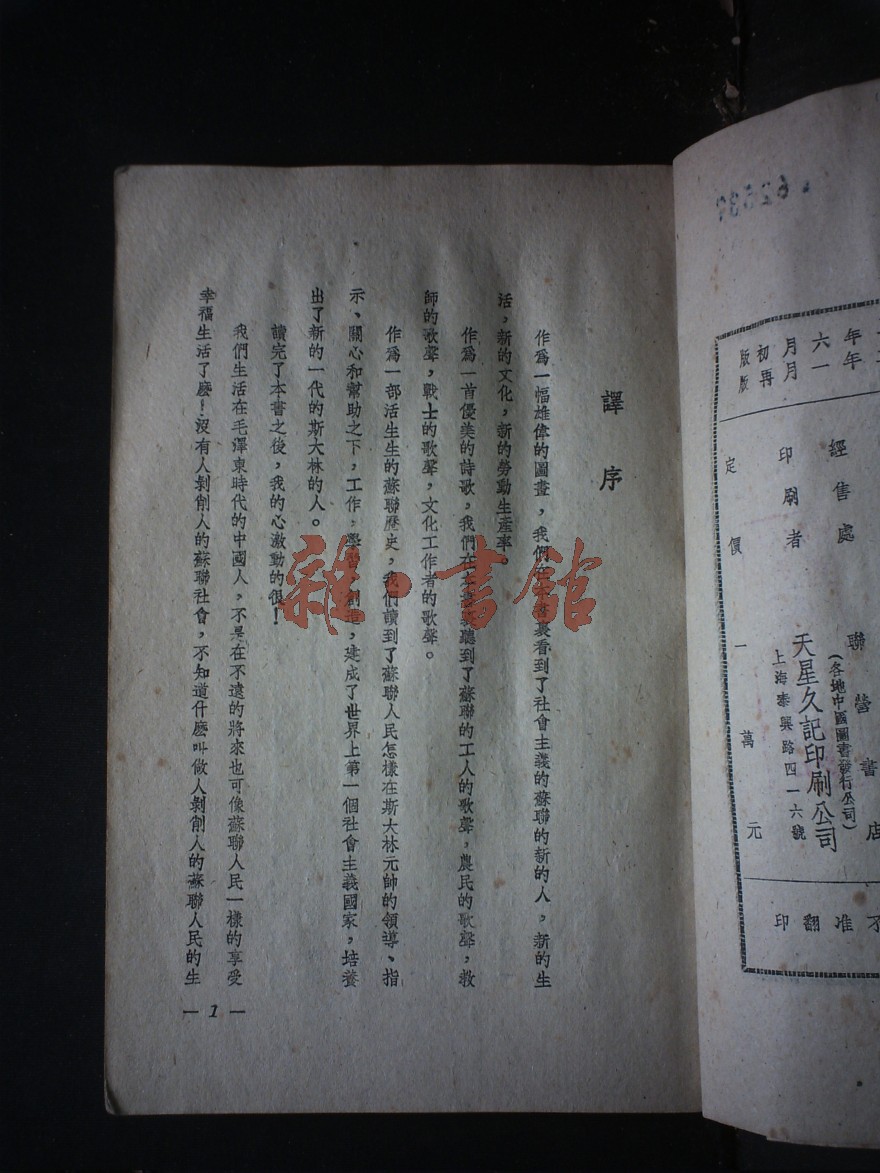 譯序
作爲一幅雄偉的圖畫，我們在本書裏看到了社會主義的蘇聯的新的人，新的生
活，新的文化，新的勞動生產率。
作爲一首優美的詩歌，我們在本書裏聽到了蘇聯的工人的歌聲，農民的歌聲，教
師的歌聲，戰士的歌聲，文化工作者的歌聲。
作爲一部活生生的蘇聯歷史，我們讀到了蘇聯人民怎樣在斯大林元帥的領導、指
示、關心和幫助之下，工作，學習，創造，建成了世界上第一個社會主義國家，培養
出了新的一代的斯大林的人。
讀完了本書之後，我的心激動的很！
我們生活在毛澤東時代的中國人，不是在不遠的將來也可像蘇聯人民一樣的享受
幸福生活了麽！沒有人剝削人的蘇聯社會，不知道什麽叫做人剝削人的蘇聯人民的生
— 1 —
年六月初版
年一月再版
經售處 聯營書店
(各地中國圖書發行公司)
印刷者 天星久記印刷公司
上海泰興路四一六號
定價一萬元
不准翻印
雜·書館